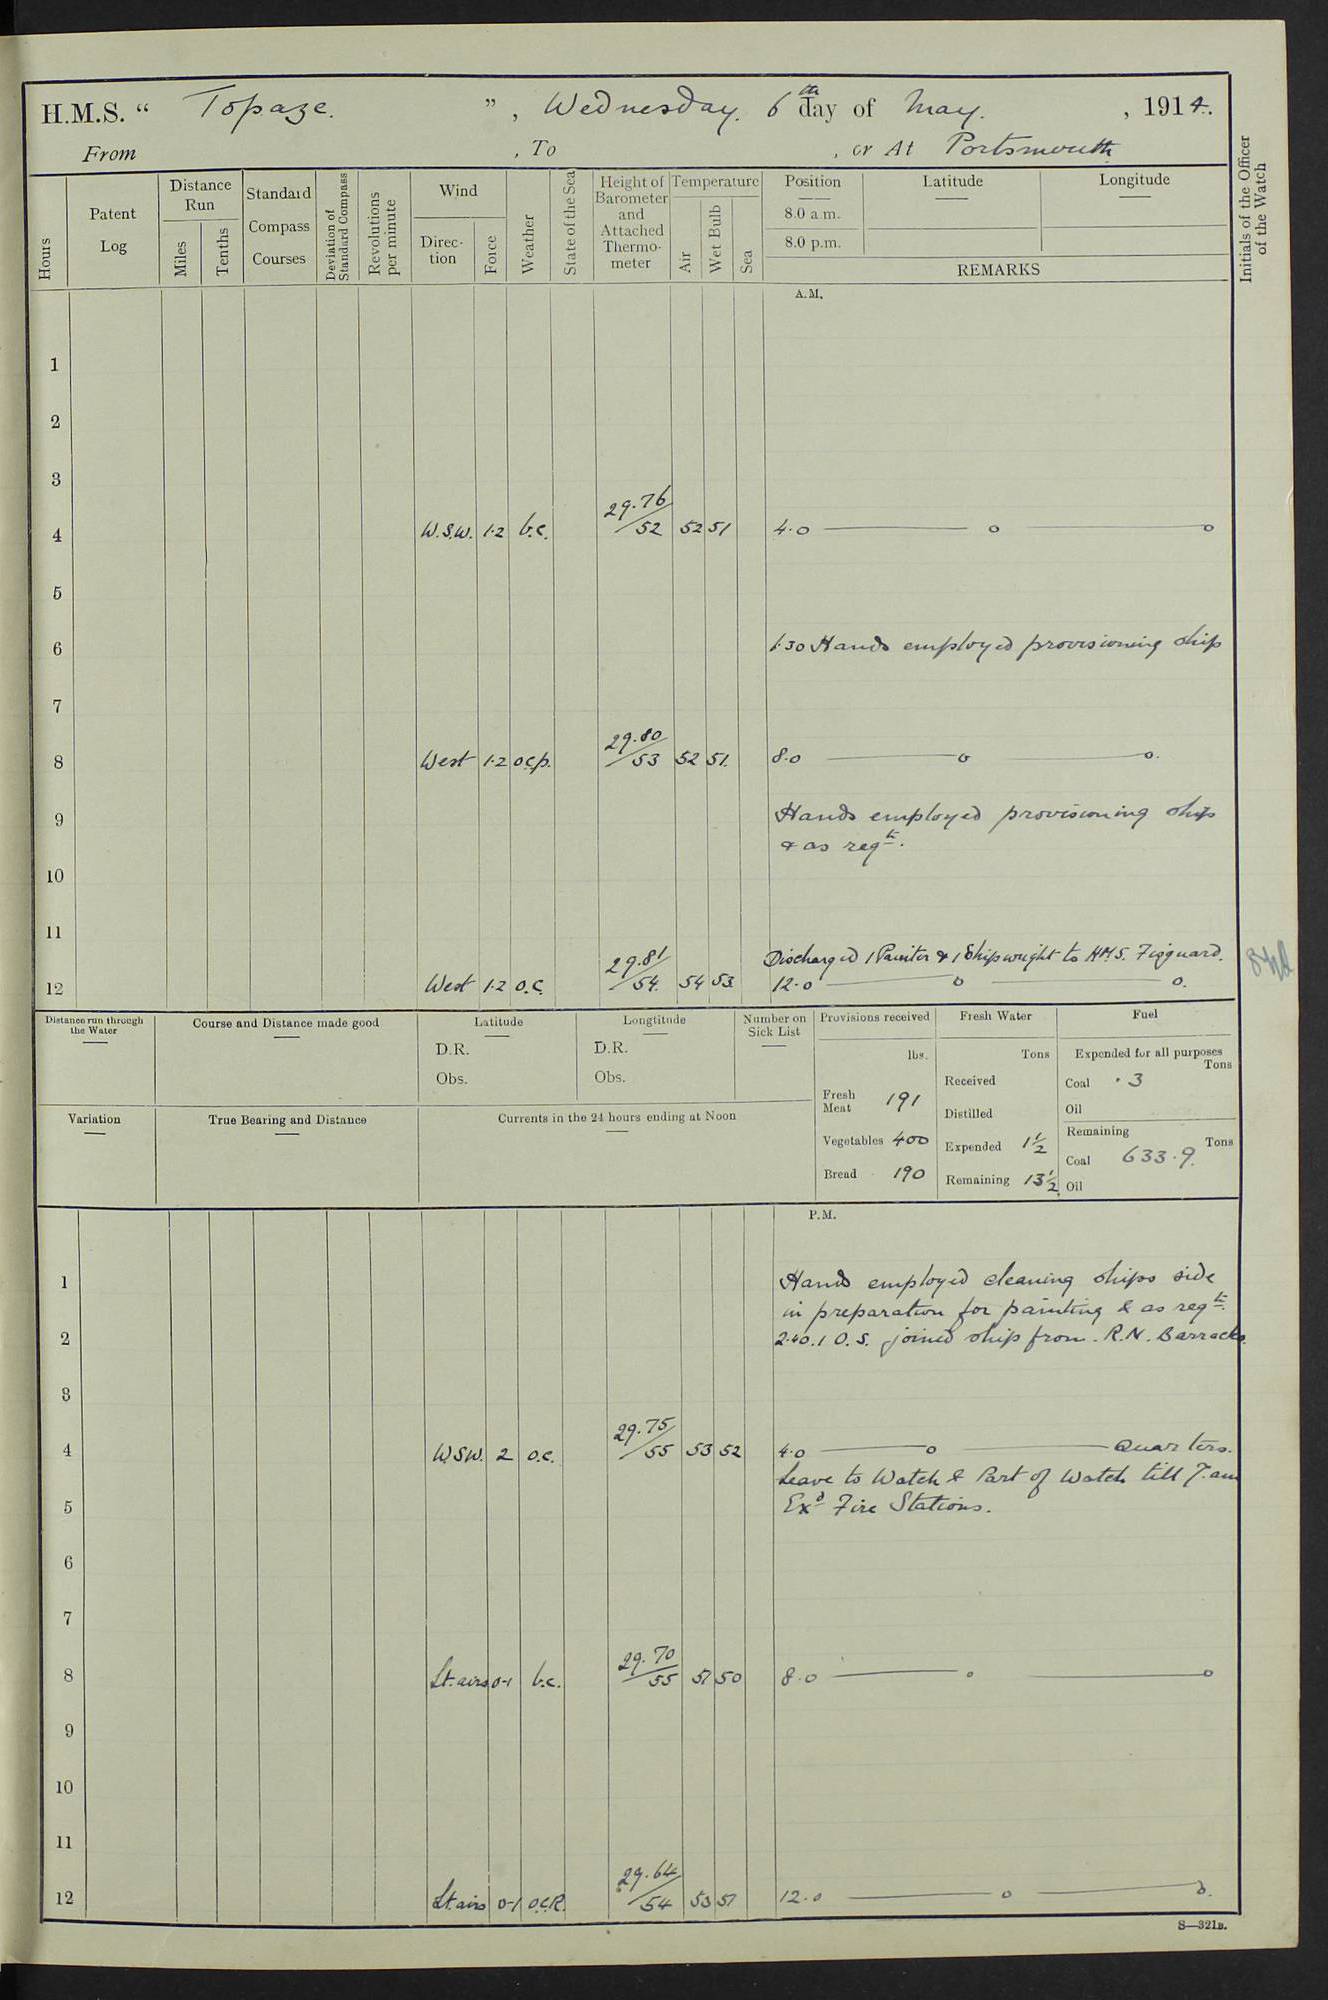 H.M.S. “ Topaze. ”, Wednesday. 6th day of May. , 1914.
From , To , or At Portsmouth
Hours
Patent Log
Distance Run
Miles
Tenths
Standard Compass Courses
Deviation of Standard Compass
Revolutions per minute
Wind
Direc- tion
Force
Weather
State of the Sea
Height of Barometer and Attached Thermo- meter
Temperature
Air
Wet Bulb
Sea
Position
8.0 a.m.
8.0 p.m.
Latitude
Longitude
REMARKS
Initials of the Officer of the Watch
A.M.
1
2
3
4 W.S.W. 1·2 b.c. 29.76/52 52 51 4·0 o o
5
6 6·30 Hands employed provisioning ship
7
8 West 1·2 o.c.p. 29.80/53 52 51. 8·0 o o.
9 Hands employed provisioning ship
& as reqte.
10
11
Discharged 1 Painter & 1 Shipwright to H.M.S. Fisguard.
12 West 1·2 o.c. 29.81/54. 54 53 12·0 o o.
Distance run through the Water
Course and Distance made good
Latitude
D.R.
Obs.
Longtitude
D.R.
Obs.
Number on Sick List
Provisions received
lbs.
Fresh Meat 191
Vegetables 400
Bread 190
Fresh Water
Tons
Received
Distilled
Expended 1½
Remaining 13½
Fuel
Expended for all purposes
Tons
Coal ·3
Oil
Remaining
Tons
Coal 633·9.
Oil
Variation
True Bearing and Distance
Currents in the 24 hours ending at Noon
P.M.
1 Hands employed cleaning ships side
in preparation for painting & as reqte.
2 2·40. 1 O.S. joined ship from R.N. Barracks.
3
4 WSW. 2 o.c. 29.75/55 53 52 4·0 o Quarters.
Leave to Watch & Part of Watch till 7.am
5 Exd Fire Stations.
6
7
8 Lt. airs 0-1 b.c. 29.70/55 51 50 8·0 o o
9
10
11
12 Lt. airs 0-1 O.C.R. 29.64/54 53 51 12·0 o o.
S—321B.